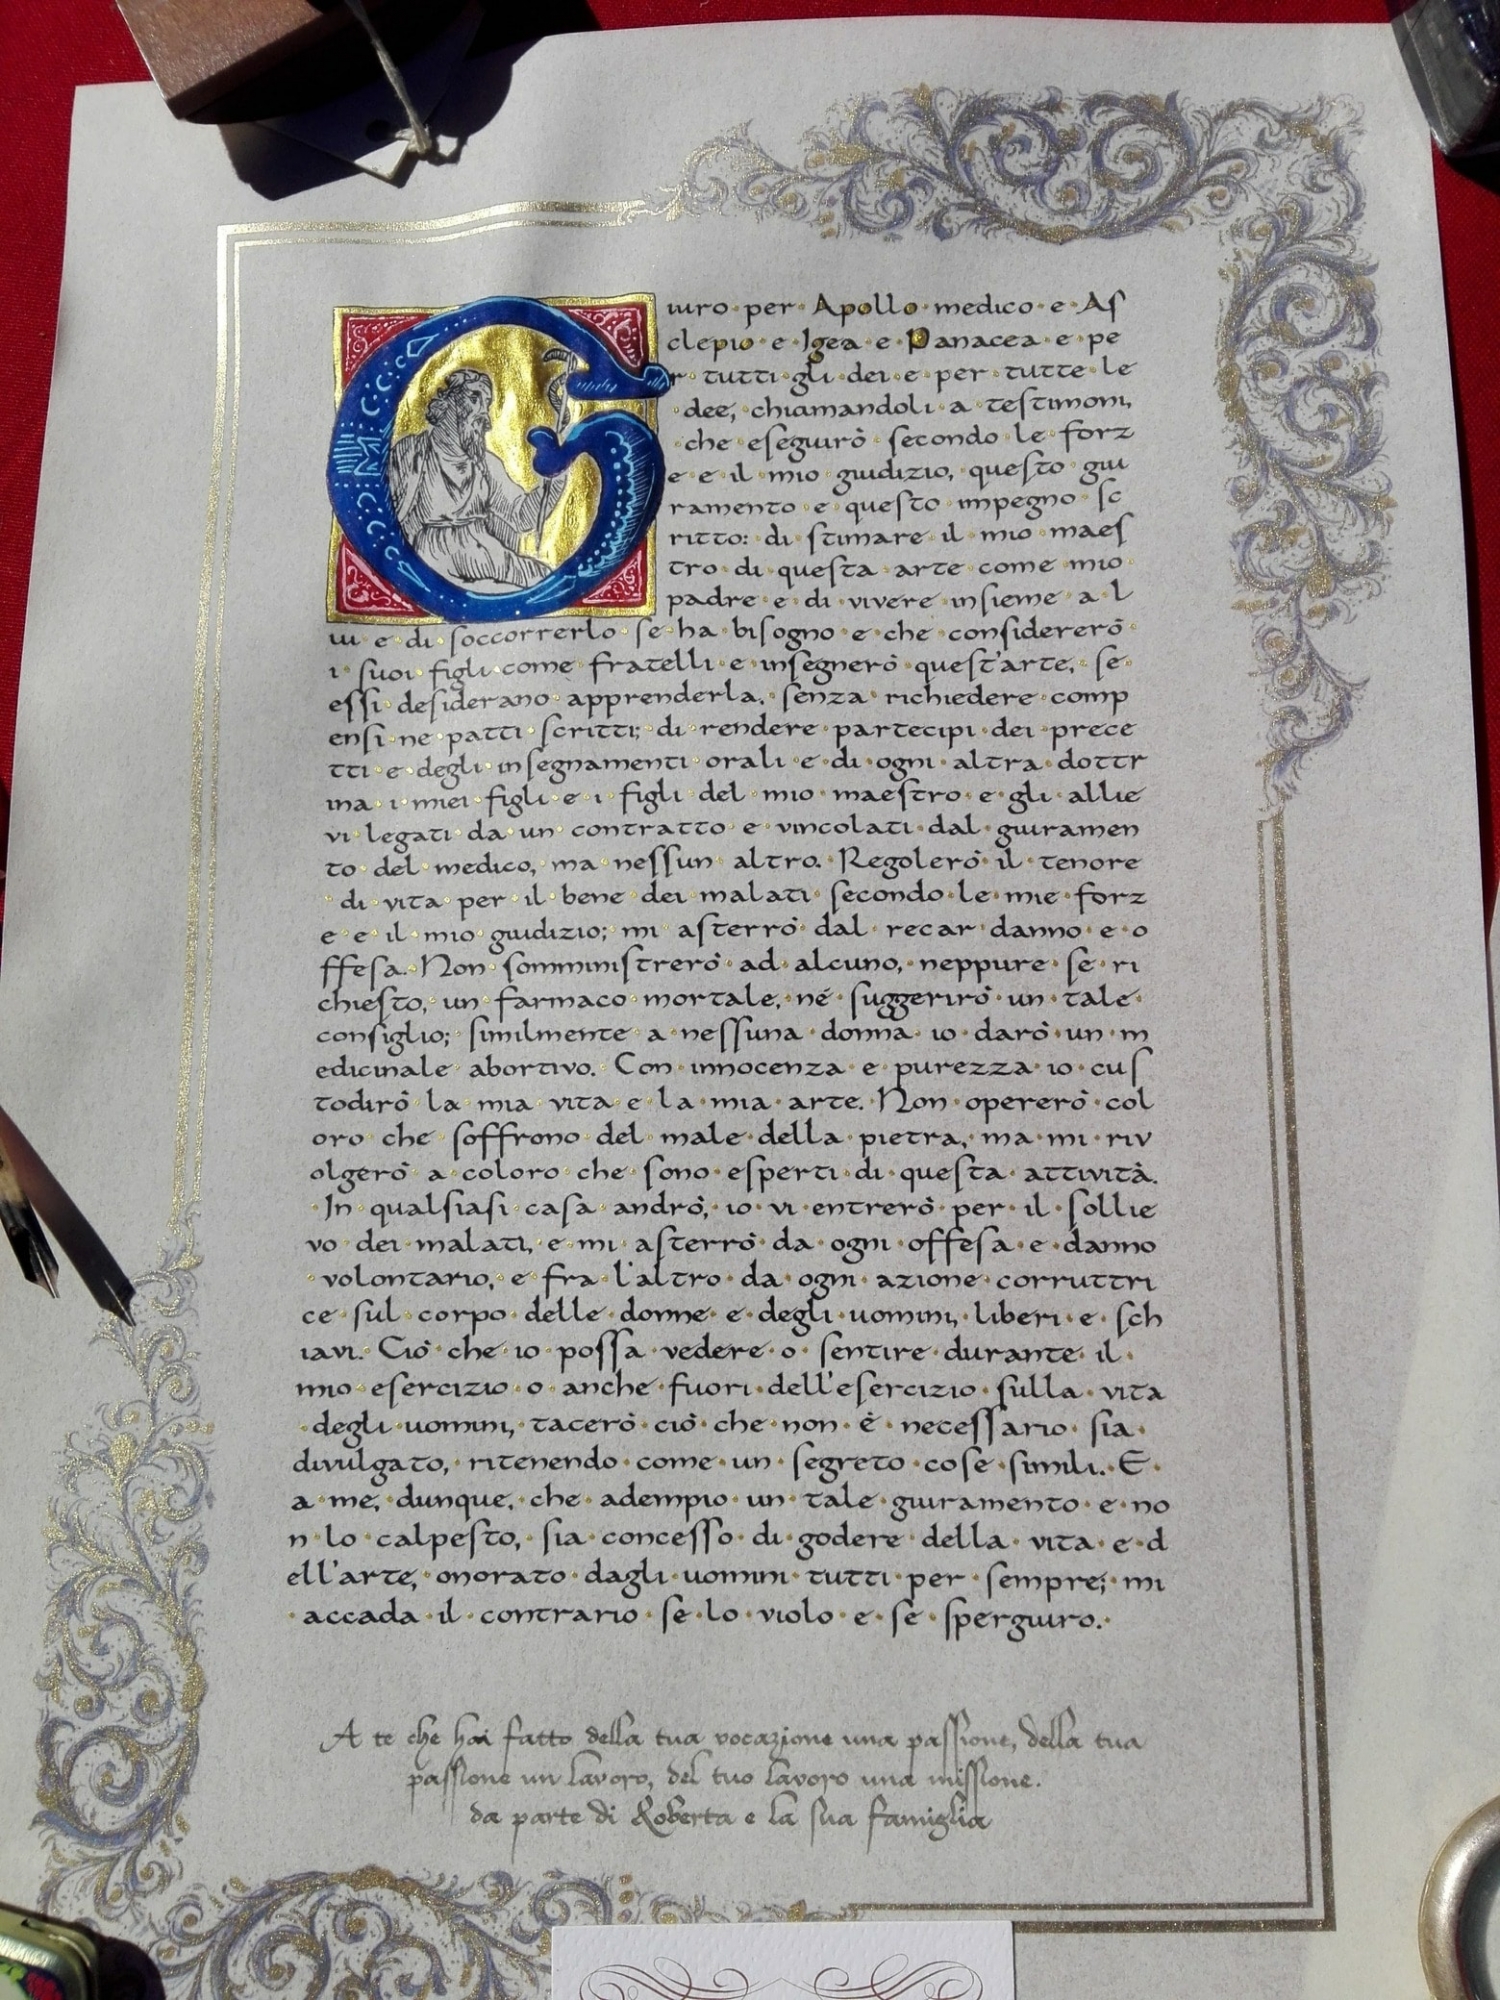 Giuro per Apollo medico e As
clepio e Igea e Panacea e pe
r tutti gli dei e per tutte le
dee, chiamandoli a testimoni,
che eseguirò secondo le forz
e e il mio giudizio, questo giu
ramento e questo impegno sc
ritto: di stimare il mio maes
tro di questa arte come mio
padre e di vivere insieme a l
ui e di soccorrerlo se ha bisogno e che considererò
i suoi figli come fratelli e insegnerò quest'arte, se
essi desiderano apprenderla, senza richiedere comp
ensi ne patti scritti; di rendere partecipi dei prece
tti e degli insegnamenti orali e di ogni altra dottr
ina i miei figli e i figli del mio maestro e gli allie
vi legati da un contratto e vincolati dal giuramen
to del medico, ma nessun altro. Regolerò il tenore
di vita per il bene dei malati secondo le mie forz
e e il mio giudizio; mi asterrò dal recar danno e o
ffesa. Non somministrerò ad alcuno, neppure se ri
chiesto, un farmaco mortale, né suggerirò un tale
consiglio; similmente a nessuna donna io darò un m
edicinale abortivo. Con innocenza e purezza io cus
todirò la mia vita e la mia arte. Non opererò col
oro che soffrono del male della pietra, ma mi riv
olgerò a coloro che sono esperti di questa attività.
In qualsiasi casa andrò, io vi entrerò per il sollie
vo dei malati, e mi asterrò da ogni offesa e danno
volontario, e fra l'altro da ogni azione corruttri
ce sul corpo delle donne e degli uomini, liberi e sch
iavi. Ciò che io possa vedere o sentire durante il
mio esercizio o anche fuori dell'esercizio sulla vita
degli uomini, tacerò ciò che non è necessario sia
divulgato, ritenendo come un segreto cose simili. E
a me, dunque, che adempio un tale giuramento e no
n lo calpesto, sia concesso di godere della vita e d
ell'arte, onorato dagli uomini tutti per sempre; mi
accada il contrario se lo violo e se spergiuro.
A te che hai fatto della tua vocazione una passione, della tua
passione un lavoro, del tuo lavoro una missione.
da parte di Roberta e la sua famiglia